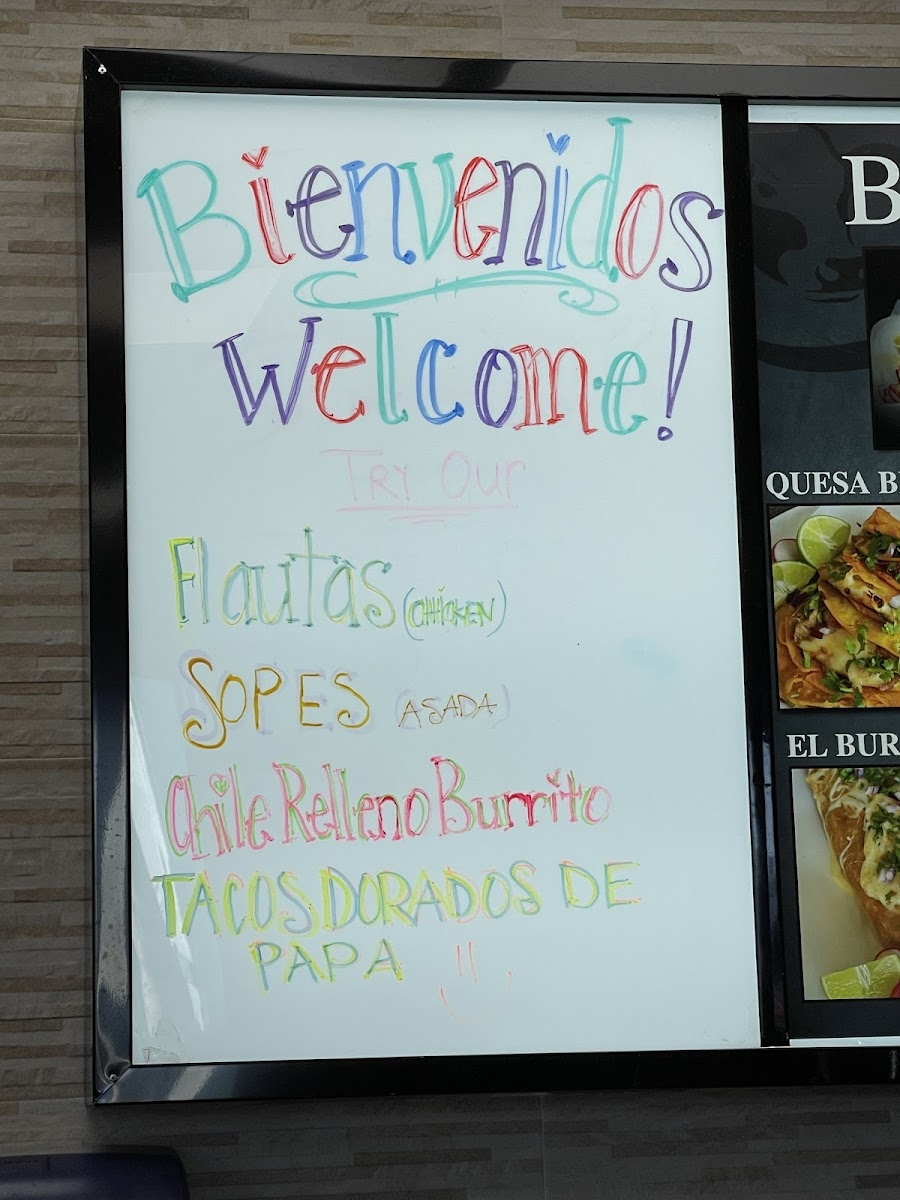 Bienvenidos
Welcome!
TRY Our
Flautas (CHICKEN)
SOPES (ASADA)
Chile Relleno Burrito
TACOS DORADOS DE
PAPA
B
QUESA B
EL BUR